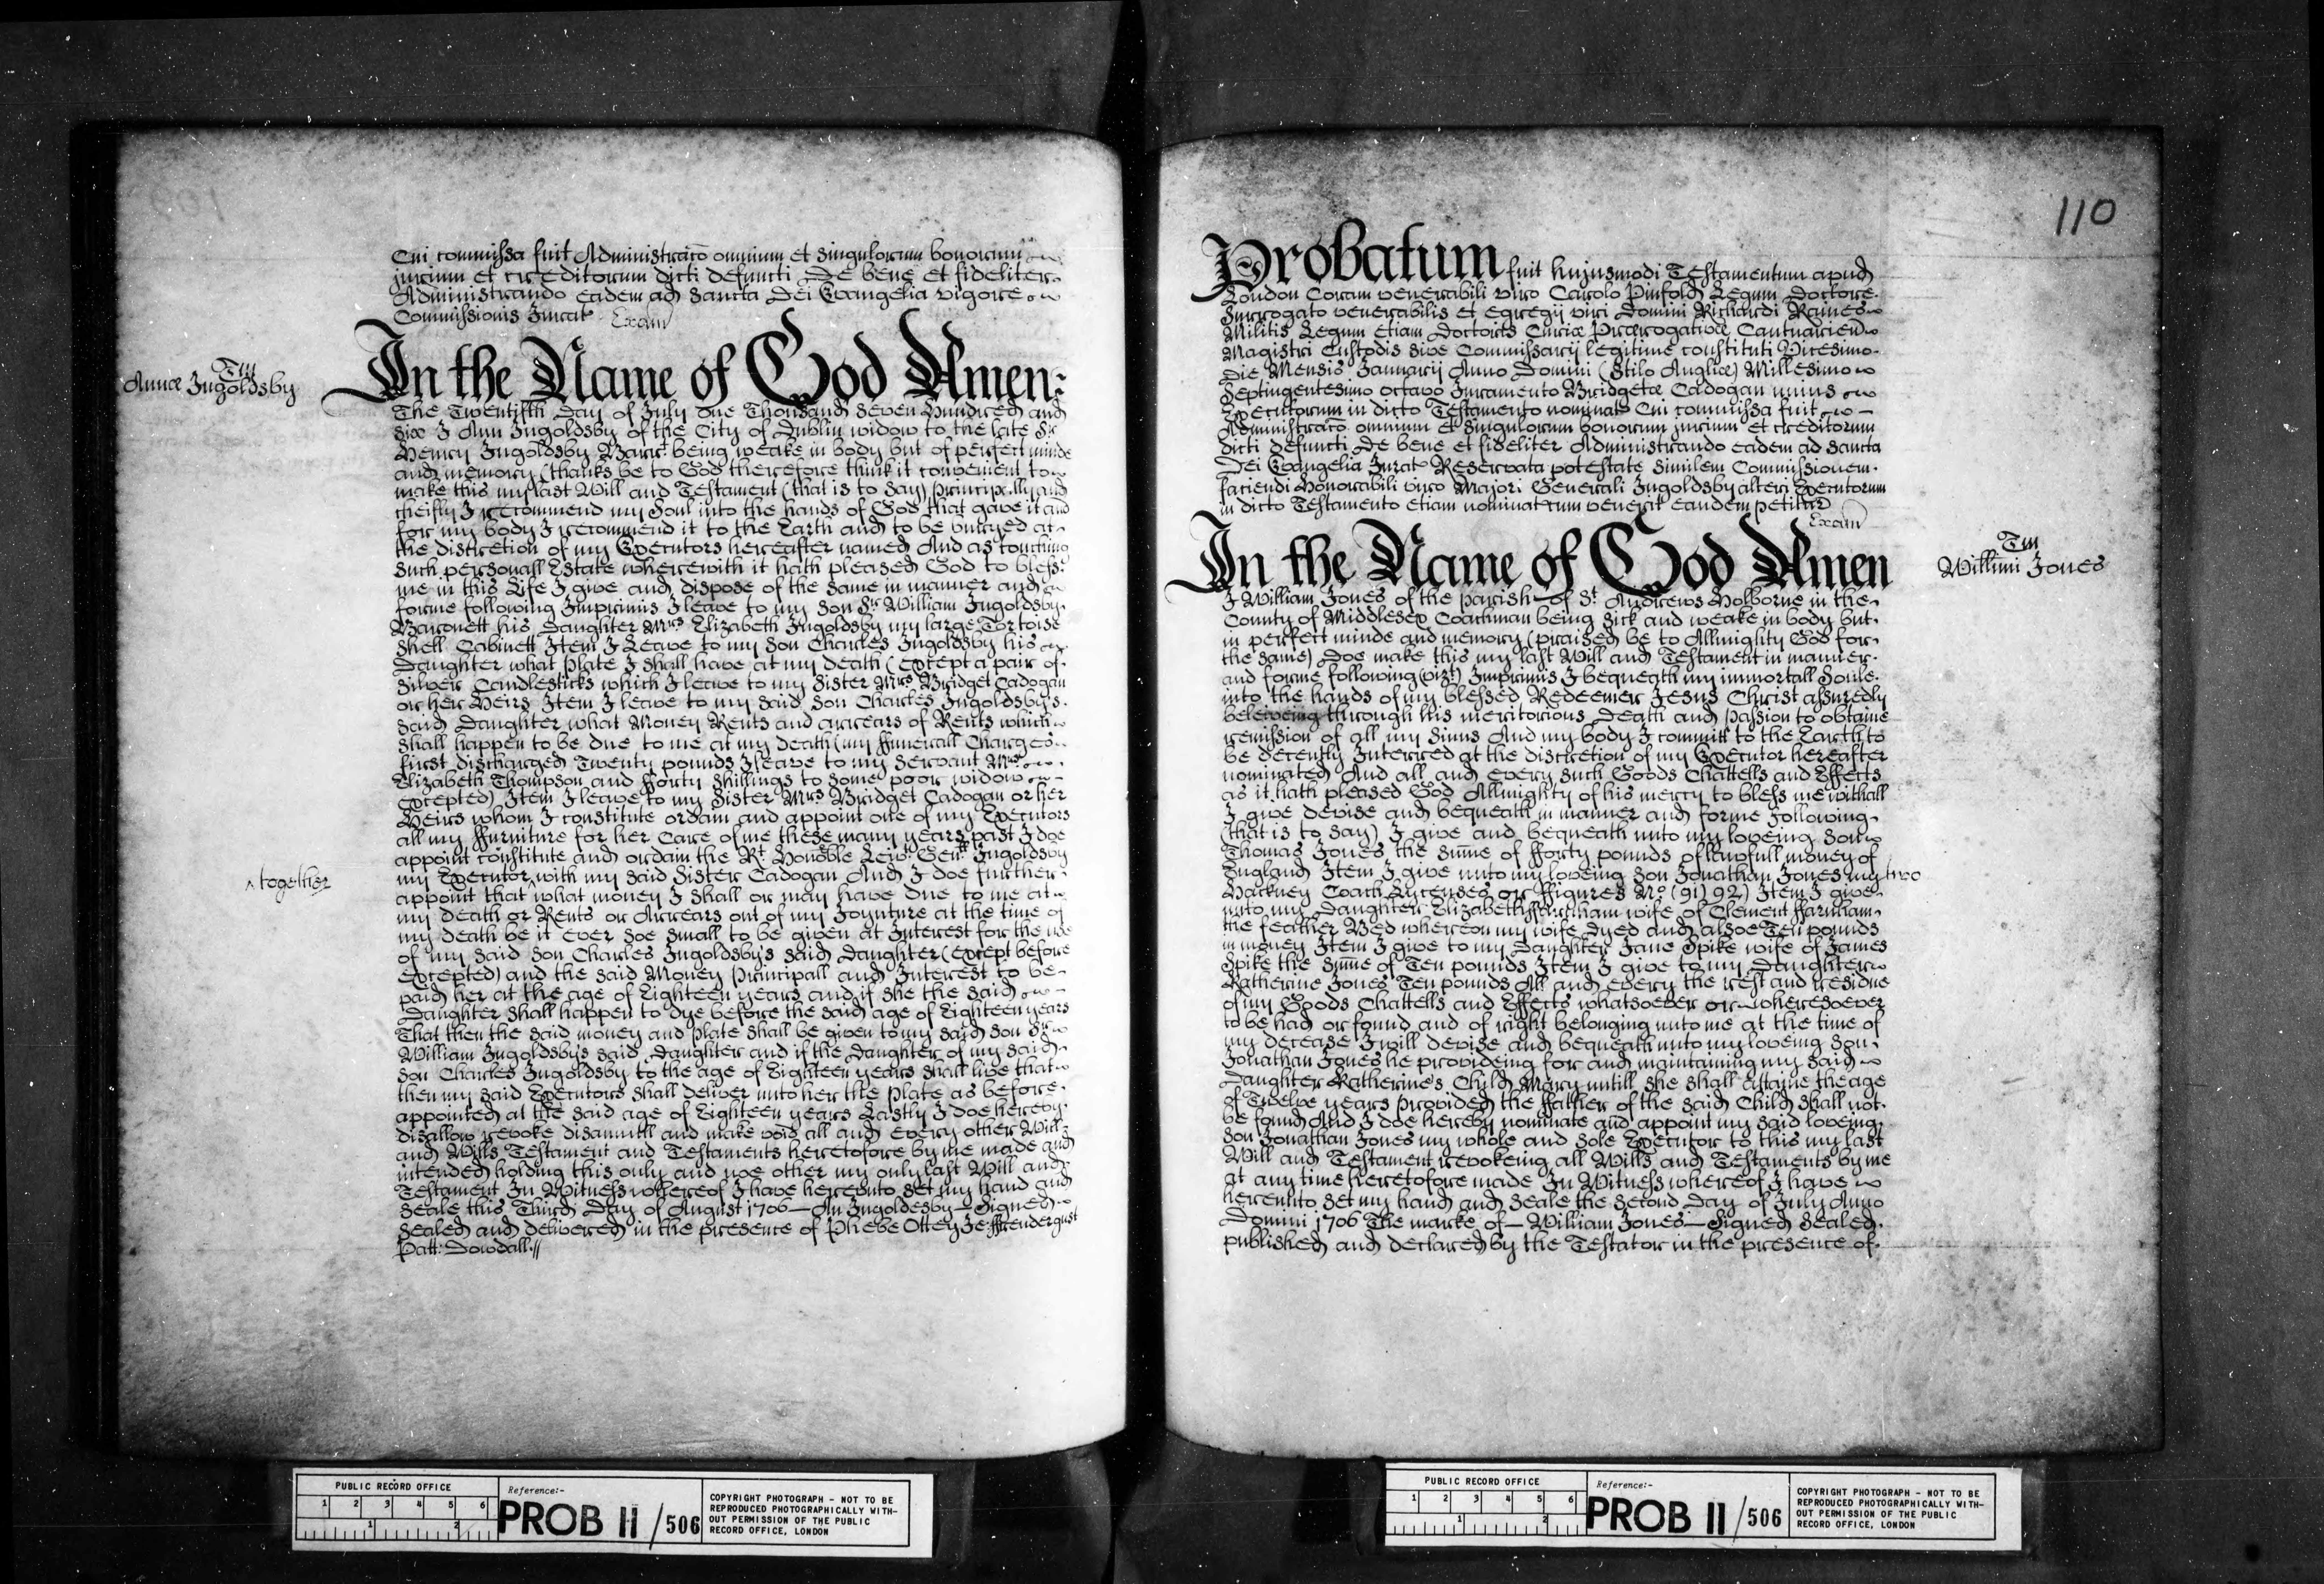 Cui commissa fuit Administracõ omnium et singulorum bonorum
jurium et creditorum dicti defuncti De bene et fideliter
Administrando eadem ad Sancta Dei Evangelia vigore
Commissionis Jurat Exam
Tm
Annæ Ingoldsby
In the Name of God Amen:
The Twentifth Day of July One Thousand Seven Hundred and
Six I Ann Ingoldsby of the City of Dublin widow to the late Sr
Henry Ingoldsby Barrt being weake in body but of perfect minde
and memory (thanks be to God therefore think it convenient to
make this my last Will and Testament (that is to say) Principally and
cheifly I recommend my Soul into the hands of God that gave it and
for my body I recommend it to the Earth and to be buryed at
the discretion of my Executors hereafter named And as touching
Such personall Estate wherewith it hath pleased God to bless
me in this Life I give and dispose of the same in manner and
forme following Imprimis I leave to my Son Sr William Ingoldsby
Barronett his Daughter Mrs Elizabeth Ingoldsby my large Tortoise
Shell Cabinett Item I Leave to my Son Charles Ingoldsby his
Daughter what Plate I shall have at my death (except a pair of
Silver Candlesticks which I leave to my Sister Mrs Bridget Cadogan
or her Heirs Item I leave to my said Son Charles Ingoldsby's
said Daughter what Money Rents and arrears of Rents which
shall happen to be due to me at my death (my ffunerall Charges
first discharged Twenty pounds I leave to my Servant Mrs
Elizabeth Thompson and fforty shillings to some poor widow
excepted) Item I leave to my Sister Mrs Bridget Cadogan or her
Heirs whom I constitute ordain and appoint one of my Executors
all my ffurniture for her Care of me these many years past I doe
appoint constitute and ordain the Rt Honoble Leivt Genll Ingoldsby
my Executor with my said Sister Cadogan And I doe further
^ together
appoint that ^ what money I shall or may have due to me at
my death or Rents or Arrears out of my Joynture at the time of
my death be it ever soe small to be given at Interest for the use
of my said Son Charles Ingoldsby's said Daughter (except before
excepted) and the said Money Principall and Interest to be
paid her at the age of Eighteen years and if she the said
Daughter shall happen to dye before the said age of Eighteen years
That then the said money and plate shall be given to my said Son Sr
William Ingoldsby's said Daughter and if the Daughter of my said
Son Charles Ingoldsby to the age of Eighteen years shall live that
then my said Executors shall deliver unto her the Plate as before
appointed at the said age of Eighteen years Lastly I doe hereby
disallow revoke disannull and make void all and every other Will
and Wills Testament and Testaments heretofore by me made and
intended holding this only and noe other my only last Will and
Testament In Witness whereof I have hereunto set my hand and
Seale this Third Day of August 1706 — An Ingoldsby — Signed
Sealed and delivered in the presence of Phebe Ottey Je ffrendergust
Patt: Dowdall.//
110
Probatum fuit hujusmodi Testamentum apud
London Coram venerabili viro Carolo Pinfold Legum Doctore
Surrogato venerabilis et egregij viri Domini Richardi Raines
Militis Legum etiam Doctoris Curiæ Prærogativæ Cantuarien
Magistri Custodis sive Commissarij legitime constituti Vicesimo
die Mensis Januarij Anno Domini (Stilo Angliæ) Millesimo
Septingentesimo octavo Juramento Bridgetæ Cadogan unius
Executorum in dicto Testamento nominat Cui commissa fuit
Administracõ omnium et singulorum bonorum jurium et creditorum
dicti defuncti De bene et fideliter Administrando eadem ad Sancta
Dei Evangelia Jurat Reservata potestate similem Commissionem
faciendi Honorabili viro Majori Generali Ingoldsby alteri Executorum
in dicto Testamento etiam nominat cum venerit eandem petitur
Exam
Tm
Willimi Jones
In the Name of God Amen
I William Jones of the Parish of St Andrews Holborne in the
County of Middlesex Coachman being sick and weake in body but
in perfect minde and memory (praised be to Allmighty God for
the same) Doe make this my last Will and Testament in manner
and forme following (vizt) Imprimis I bequeath my immortall Soule
into the hands of my blessed Redeemer Jesus Christ assuredly
beleiveing through his meritorious Death and Passion to obtaine
remission of all my Sinns And my body I committ to the Earth to
be decently Interred at the discretion of my Executor hereafter
nominated And all and every such Goods Chattells and Effects
as it hath pleased God Allmighty of his mercy to bless me withall
I give devise and bequeath in manner and forme following
(that is to say) I give and bequeath unto my loveing Son
Thomas Jones the Sum̃e of fforty pounds of lawfull money of
England Item I give unto my loveing Son Jonathan Jones my two
Hackney Coach Lycenses or ffigures No (91) 92) Item I give
unto my Daughter Elizabeth ffarnham wife of Clement ffarnham
the feather Bed whereon my wife dyed and alsoe Ten pounds
in money Item I give to my Daughter Jane Spike wife of James
Spike the Sum̃e of Ten pounds Item I give to my Daughter
Katherine Jones Ten pounds All and every the rest and residue
of my Goods Chattells and Effects whatsoever or wheresoever
to be had or found and of right belonging unto me at the time of
my decease I will devise and bequeath unto my loveing Son
Jonathan Jones he provideing for and maintaining my said
Daughter Katherine's Child Mary untill she shall attaine the age
of Twelve years Provided the ffather of the said Child shall not
be found And I doe hereby nominate and appoint my said loveing
Son Jonathan Jones my whole and sole Executor to this my last
Will and Testament revokeing all Wills and Testaments by me
at any time heretofore made In Witness whereof I have
hereunto set my hand and Seale the Second Day of July Anno
Domini 1706 The marke of — William Jones — Signed Sealed
published and declared by the Testator in the presence of
PUBLIC RECORD OFFICE
1 2 3 4 5 6
1 2
Reference:-
PROB 11 / 506
COPYRIGHT PHOTOGRAPH - NOT TO BE
REPRODUCED PHOTOGRAPHICALLY WITH-
OUT PERMISSION OF THE PUBLIC
RECORD OFFICE, LONDON
PUBLIC RECORD OFFICE
1 2 3 4 5 6
1 2
Reference:-
PROB 11 / 506
COPYRIGHT PHOTOGRAPH - NOT TO BE
REPRODUCED PHOTOGRAPHICALLY WITH-
OUT PERMISSION OF THE PUBLIC
RECORD OFFICE, LONDON